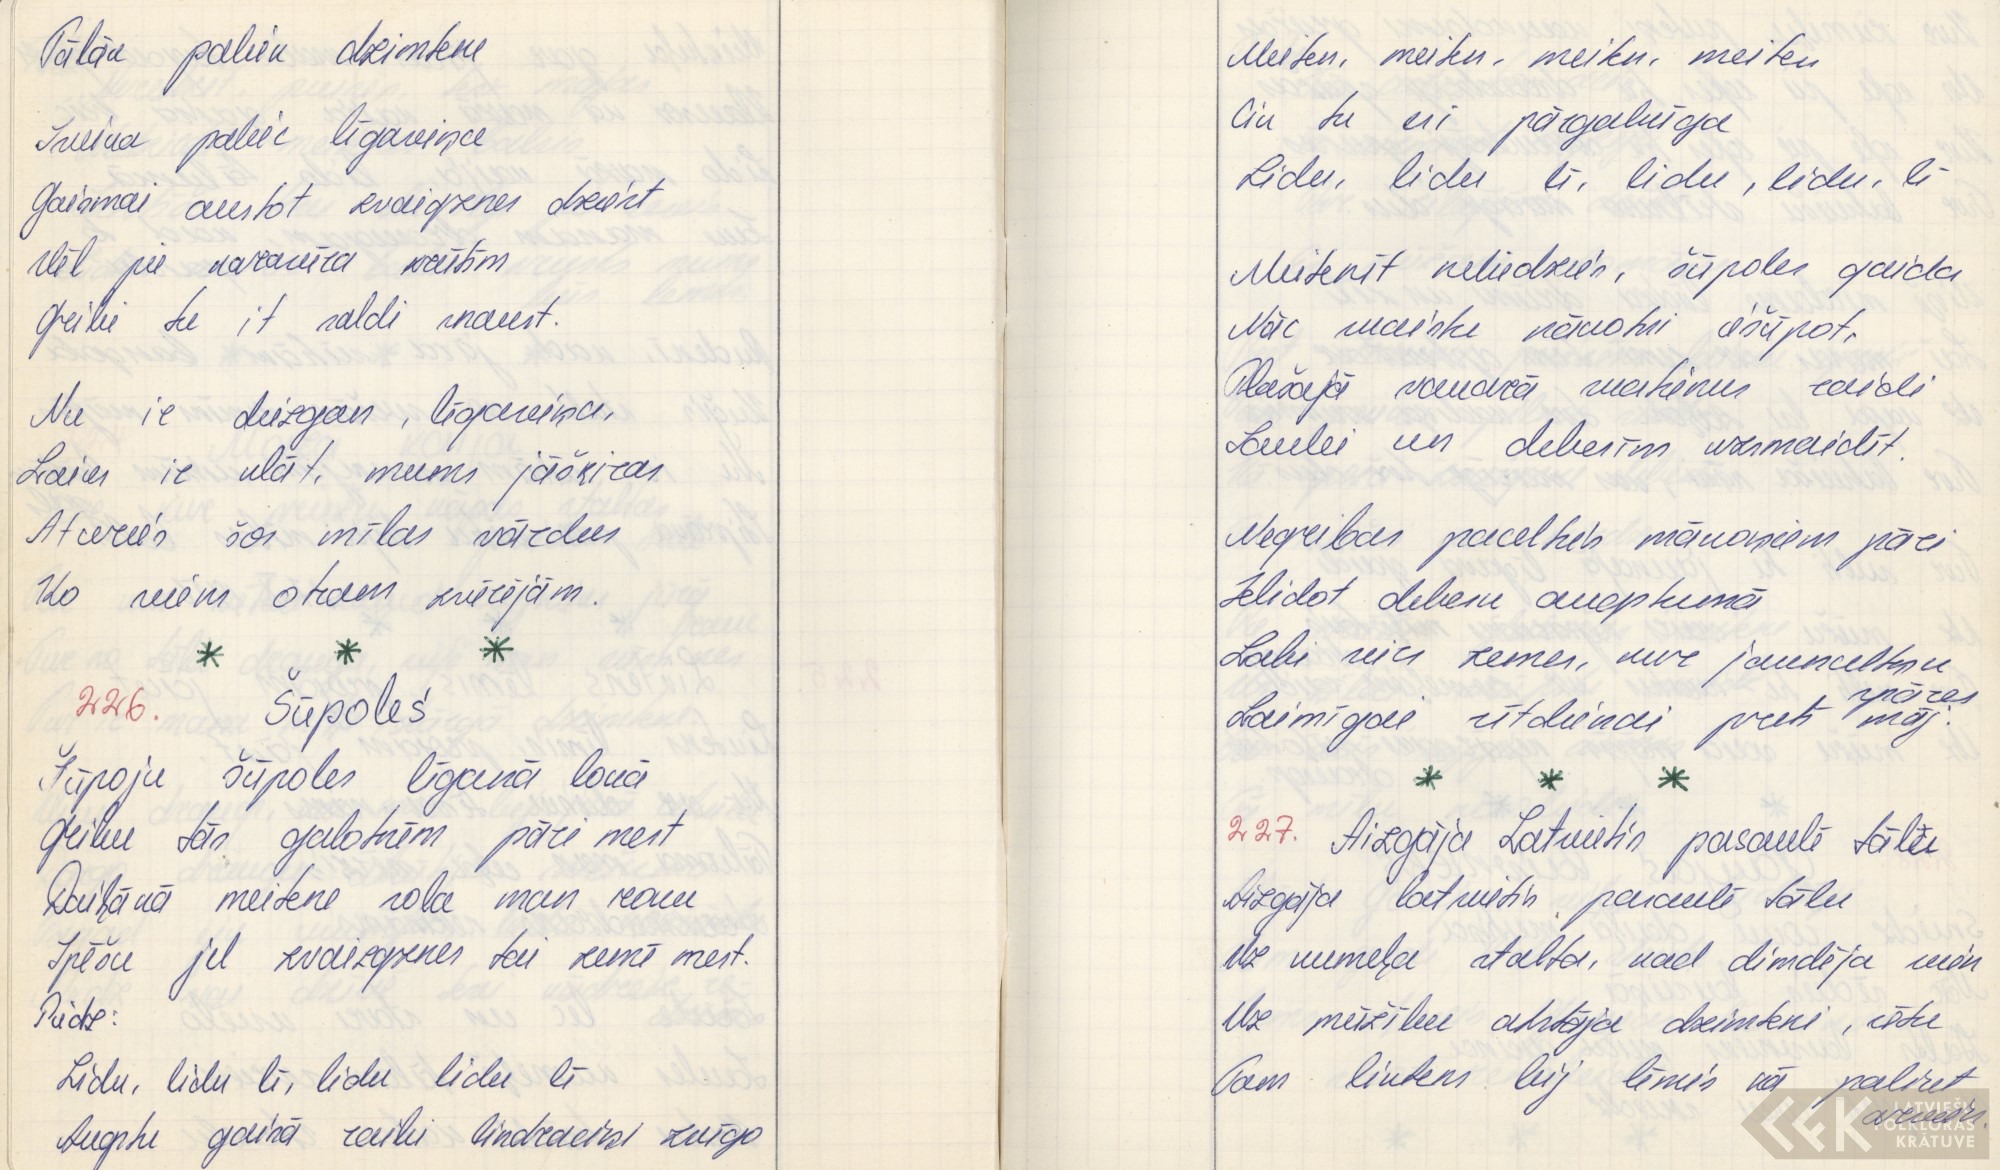 Tālāk paliek dzimtene
Sveika paliec līgaviņa
Gaismai austot zvaigznes dziest
Vēl pie karavīra krūtīm
Gribi tu it saldi snaust.
Nu ir diezgan, līgaviņa,
Laiks ir vēlāt, mums jāšķiras
Atceries šos mīlas vārdus
Ko viens otram zvērējām.
* * *
226. Šūpolēs
Šūpoju šūpoles līganā lokā
Gribu tās galotnēm pāri mest
Daiļākā meitene sola man roku
Spēšu jel zvaizgznes tai zemē mest.
Piedz:
Lidu, lidu lī, lidu lidu lī
Augstu gaisā raibi lindraciņi zvīgo
Meiten, meiten, meiten, meiten
Cik tu esi pārgalvīga
Lidu, lidu lī, lidu, lidu, lī
Meitenīt neliedzies, šūpoles gaida
Nāc svaiska nākotni iešūpot,
Plašajā vasarā matienus raidi
Saulei un debesīm uzsmaidīt.
Negribas pacelties mākoņiem pāri
Ielidot debesu augstumā
Labi vies zemes, kur jauncelteņu
Laimīgai rītdienai preti spāres
māj.
* * *
227. Aizgāja Latvietis pasaulē tālu
Aizgāja latvietis pasaulē tālu
Uz kumeļa stalta, kad dimdēja viss
Uz mūžību atstāja dzimteni, sētu
Tam liktens bij lēmis kā paliet
arvais.
LATVIEŠU
FOLKLORAS
KRĀTUVE